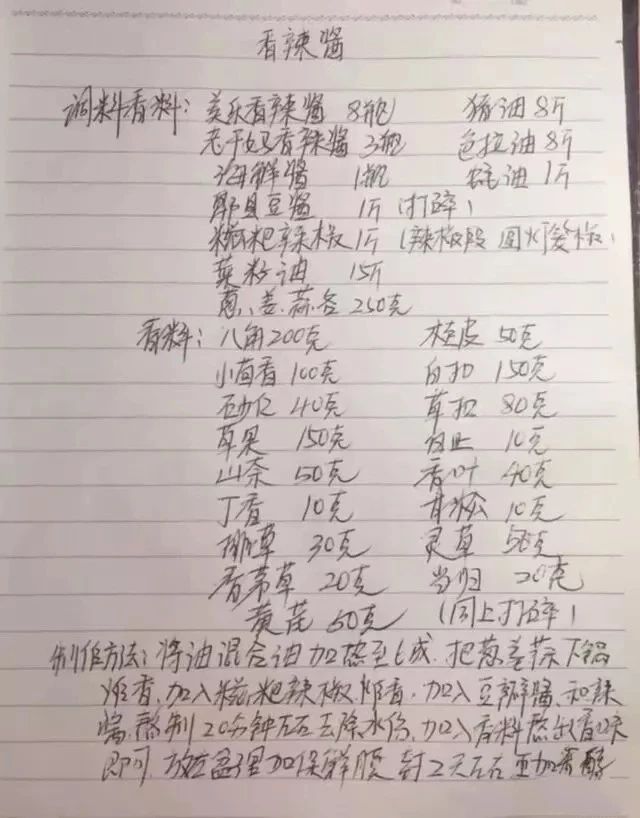 香辣酱
调料香料: 美乐香辣酱 8瓶 猪油 8斤
老干妈香辣酱 3瓶 色拉油 8斤
海鲜酱 1瓶 蚝油 1斤
郫县豆酱 1斤 (打碎)
糍粑辣椒 1斤 (辣椒段 圆灯笼椒)
菜籽油 15斤
葱、姜、蒜各 250克
香料: 八角 200克 桂皮 50克
小茴香 100克 白扣 150克
砂仁 40克 草扣 80克
草果 150克 白芷 10克
山奈 50克 香叶 40克
丁香 10克 甘松 10克
排草 30克 灵草 50克
香茅草 20克 当归 20克
黄芪 50克 (同上打碎)
制作方法: 将油混合油加热至6成. 把葱姜蒜下锅
炸香, 加入糍粑辣椒炸香. 加入豆瓣酱. 和辣
酱. 熬制20分钟左右去除水份, 加入香料熬出香味
即可. 放在盆里加保鲜膜 封2天左右 更加香醇